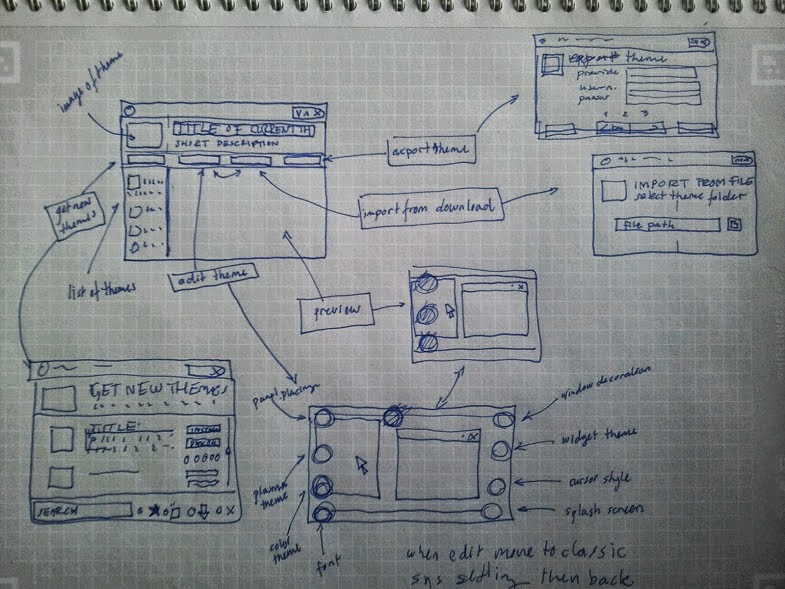 image of theme
V ^ X
TITLE OF CURRENT TH
SHORT DESCRIPTION
export theme
provider
export theme
1 2 3
IMPORT FROM FILE
select theme folder
file path
import from download
get new
themes
list of themes
edit theme
preview
GET NEW THEMES
TITLE
SEARCH
panel placing
plasma
theme
color
theme
font
window decoration
widget theme
cursor style
splash screen
when edit move to classic
sys setting then back